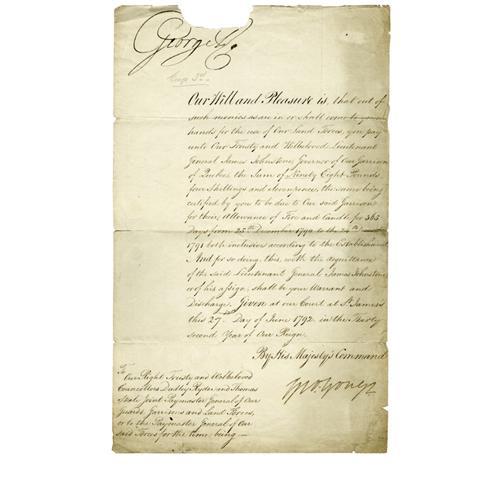 George R.
George 3rd.
Our Will and Pleasure is, that out of
such monies as are in or shall come to your
hands for the use of Our Land Forces, you pay
unto Our Trusty and Wellbeloved Lieutenant
General James Johnstone, Governor of Our Garrison
of Quebec the Sum of Ninety Eight Pounds
four Shillings and Sevenpence, the same being
certified by you to be due to Our said Garrison
for their allowance of Fire and Candle for 365
Days from 25th December 1790 to the 24th
1791 both inclusive according to the Establishment
And for so doing this, with the acquittance
of the said Lieutenant General James Johnstone
or of his assign, shall be your Warrant and
Discharge. Given at our Court at St James's
this 27th Day of June 1792 in the Thirty
second Year of Our Reign.
By His Majesty's Command
To
Our Right Trusty and Wellbeloved
Councellors Dudley Ryder and Thomas
Steele Joint Paymaster General of Our
Guards Garrisons and Land Forces,
or to the Paymaster General of Our
said Forces for the time being